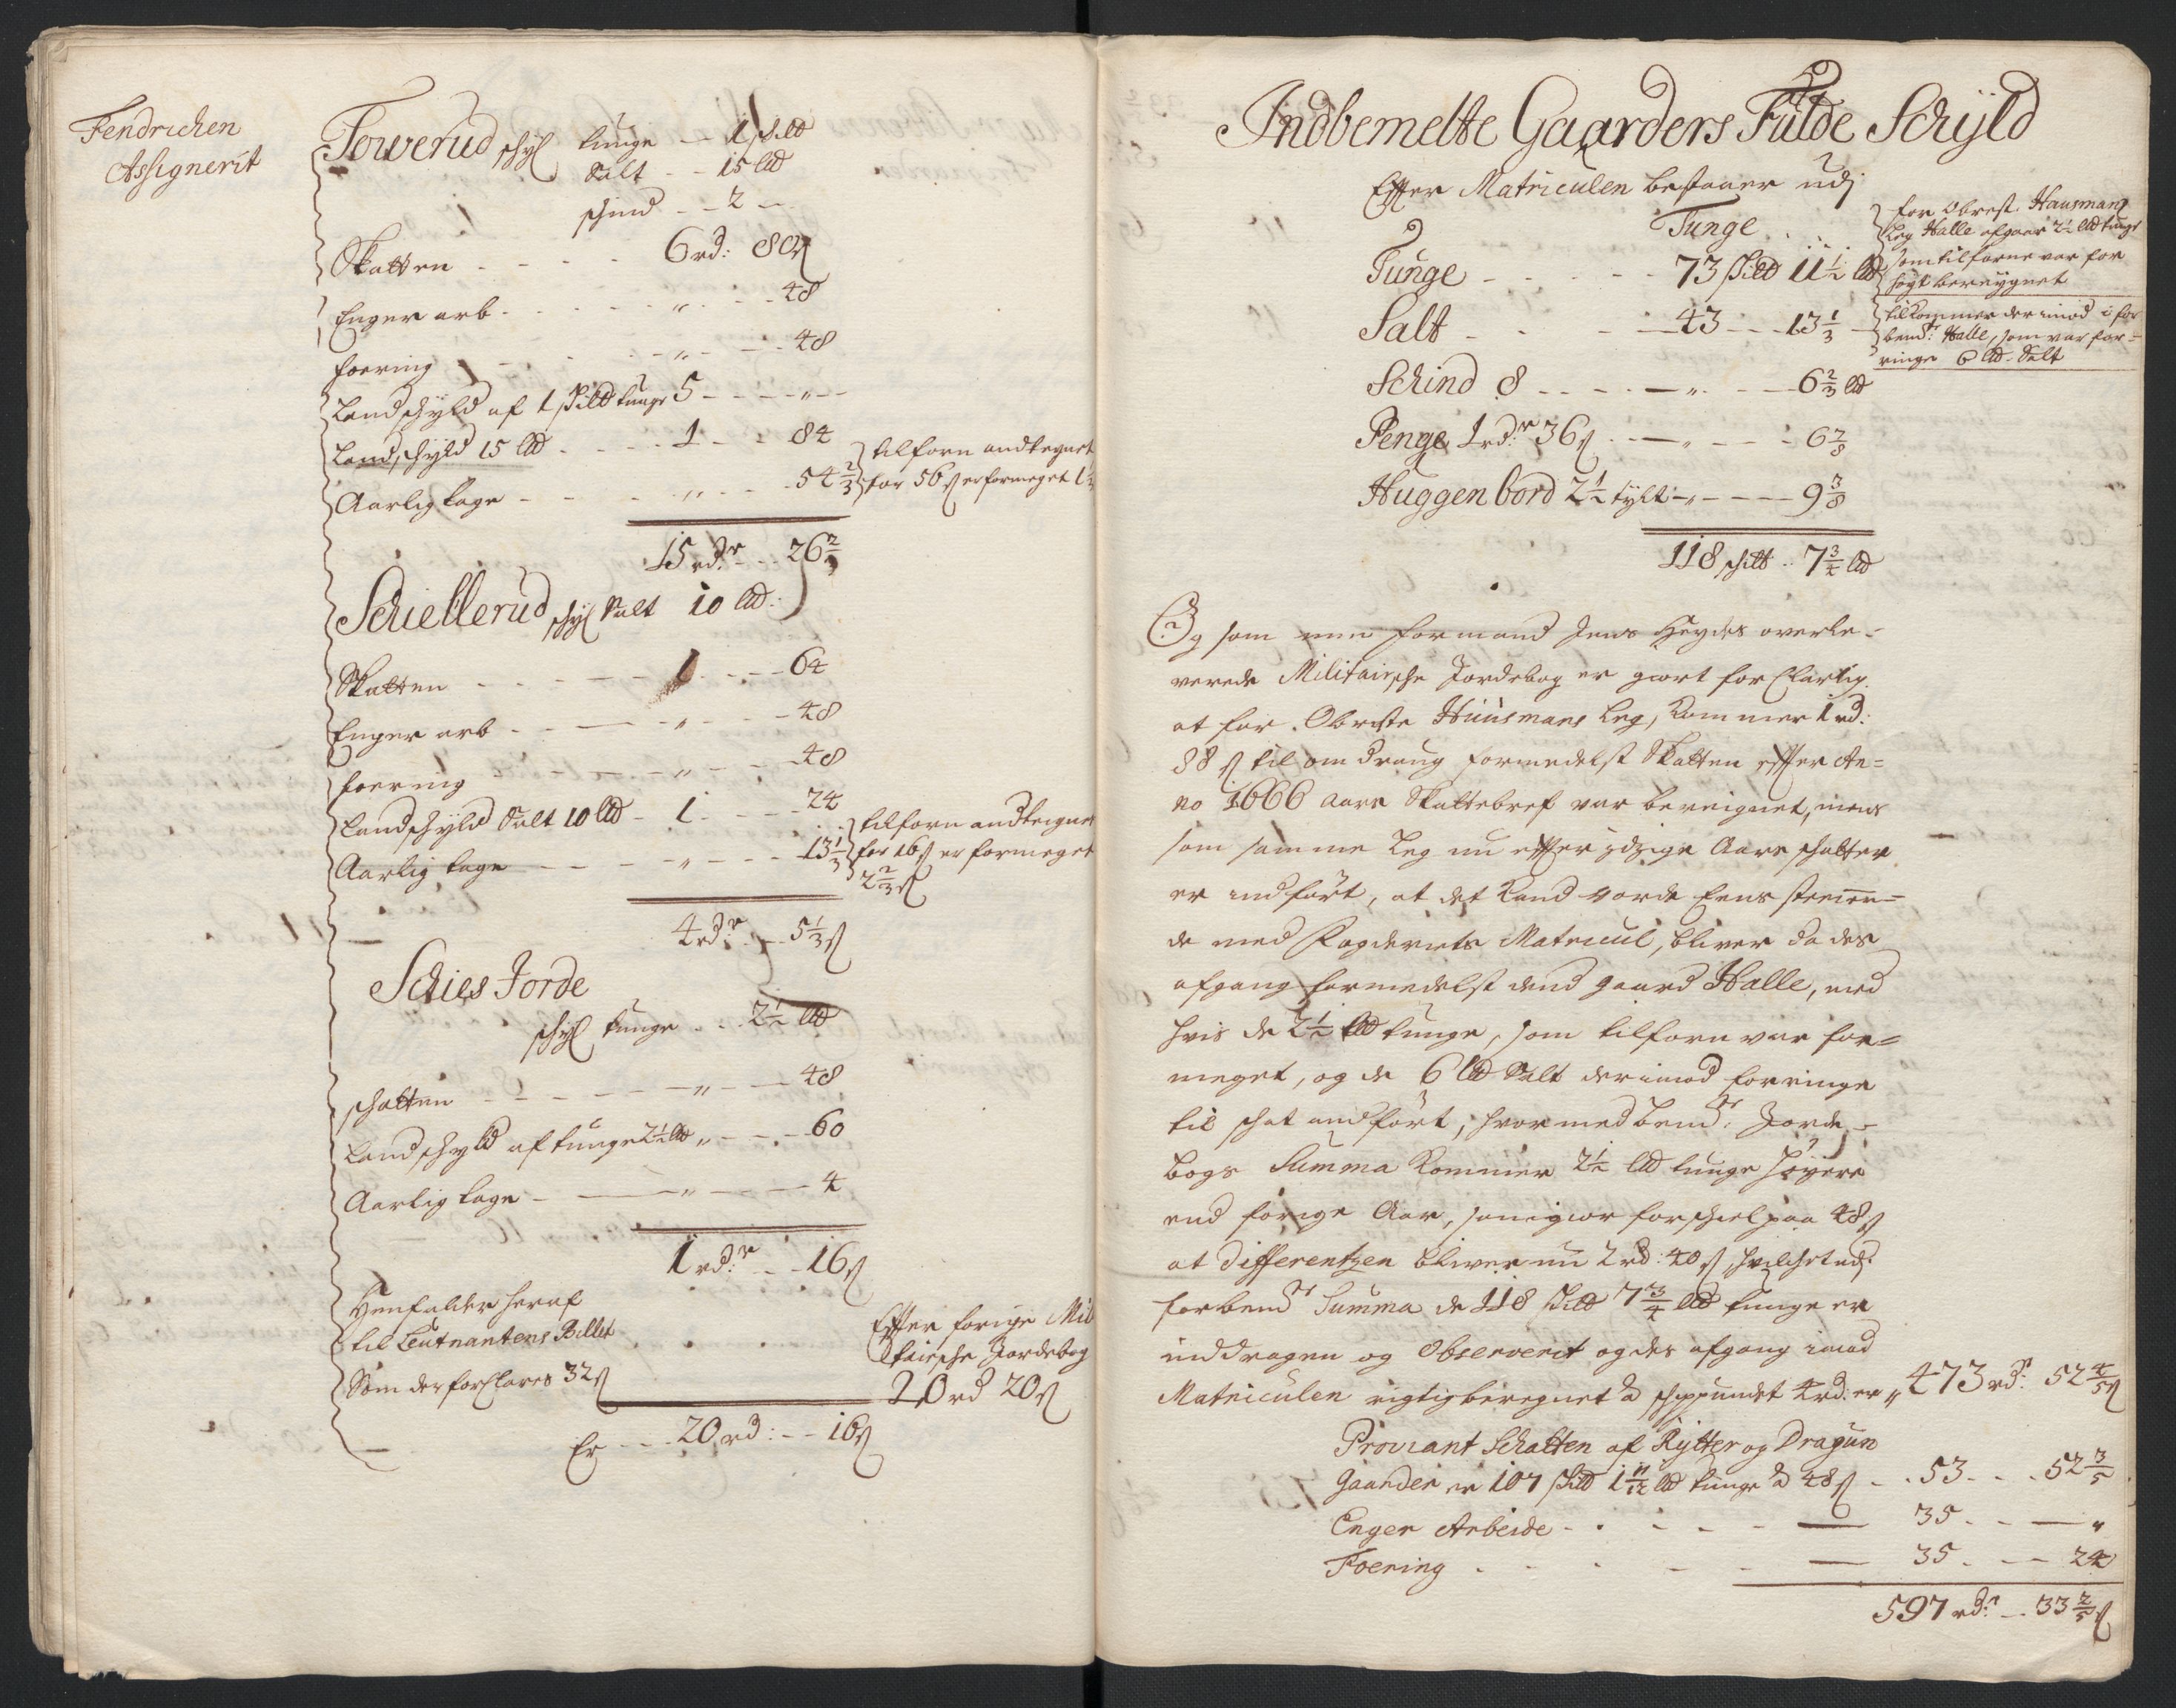 Fendrichen
Assignerit
Towerud schyl tunge - 1 schild
Salt - - 15 lld
schind - - 2 -
Skatten - - - - 6 rd: 80 s
Enger arb - - - - " - - 48
foering - - - - " - - 48
Landschyld af 1 schild tunge 5 - - - " -
Landschyld 15 lld - - - 1 - - 84
Aarlig tage - - - - " - - 54 2/3
tilforn andtegnet
for 56 s er formeget 1 1/3
15 rdr - - 26 2/3
Schiellerud schyl Salt 10 lld:
Skatten - - - - 1 - - - 64
Enger arb - - - - " - - - 48
foering - - - - " - - - 48
Landschyld Salt 10 lld - 1 - - - 24
Aarlig tage - - - - " - - - 13 1/3
tilforn andteignet
for 16 s er formeget
2 2/3 s
4 rdr - - 5 1/3 s
Schies Jorde
schyl tunge - - 2 1/2 lld
schatten - - - - " - - 48
Landschyld af tunge 2 1/2 lld " - - - 60
Aarlig tage - - - " - - - 4
1 rdr - - 16 s
Henfalder heraf
til Leutnantens Billet
Som der forklares 32 s
Effter forige Mil
itairsche Jordebog
20 rd 20 s
Er - - - 20 rd: - - 16 s
Indbemelte Gaarders Fulde Schyld
Effter Matriculen bestaaer udj
Tunge
Tunge - - - - - 73 schild 11 1/2 lld
Salt - - - - 43 - - 13 1/3
Schind 8 - - - - " - - 6 2/3 lld
Penge 1 rdr 36 s - - " - - - 6 7/8
Huggenbord 2 1/2 tylt - " - - - 9 3/8
118 schild - 7 3/4 lld
for Obrest Hausmans
Leg Halle afgaar 2 1/2 lld tunge
som tilforne var for
høyt bereygnet
tilkommer derimod i for
bemte Halle, som var for-
ringe 6 lld. Salt
Og som min Formand Jens Heydes overle-
verede Militairsche Jordebog er giort forklarlig
at for Obriste Huusmans leg, kommer 1 rd:
88 s til omdraug formedelst Skatten effter An-
no 1666 Aars Skattebref var bereignet, mens
som samme Leg nu effter ydzige Aars schatter
er indført, at det kand vorde Eens stemen-
de med Fogderiets Matricul, bliver da des
afgang formedelst dend gaard Halle, med
hvis de 2 1/2 lld tunge, som tilforn var for-
meget, og de 6 lld Salt derimod forringe
til schat andført, hvormed bemte Jorde-
bogs Summa kommer 2 1/2 lld tunge høyere
end forige Aar, som giør forschiel paa 48 s
at differentzen bliver nu 2 rd: 40 s, hvilchet udj
forbemte Summa de 118 schild 7 3/4 lld tunge er
inddragen og Observerit og des afgang imod
Matriculen rigtig beregnet a schippundet 4 rd: er " 473 rdr: 52 4/5 s
Proviant Schatten af Rytter og Dragun
Gaarder er 107 schild 1 11/12 lld tunge a 48 s - - 53 - - - 52 3/5
Enger Arbeide - - - - - 35 - - - "
Foering - - - - - 35 - - - 24
597 rdr: - - 33 2/5 s